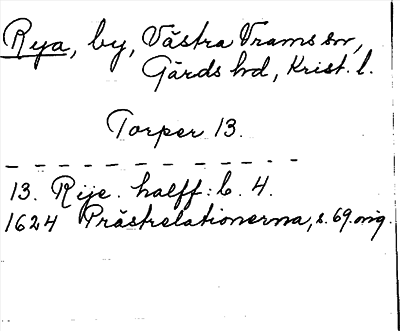 Rya, by, Västra Vrams sn,
Gärds hd, Krist. l.
Torper 13.
13. Rije. halff: b. 4.
1624 Prästrelationerna, s. 69. orig.